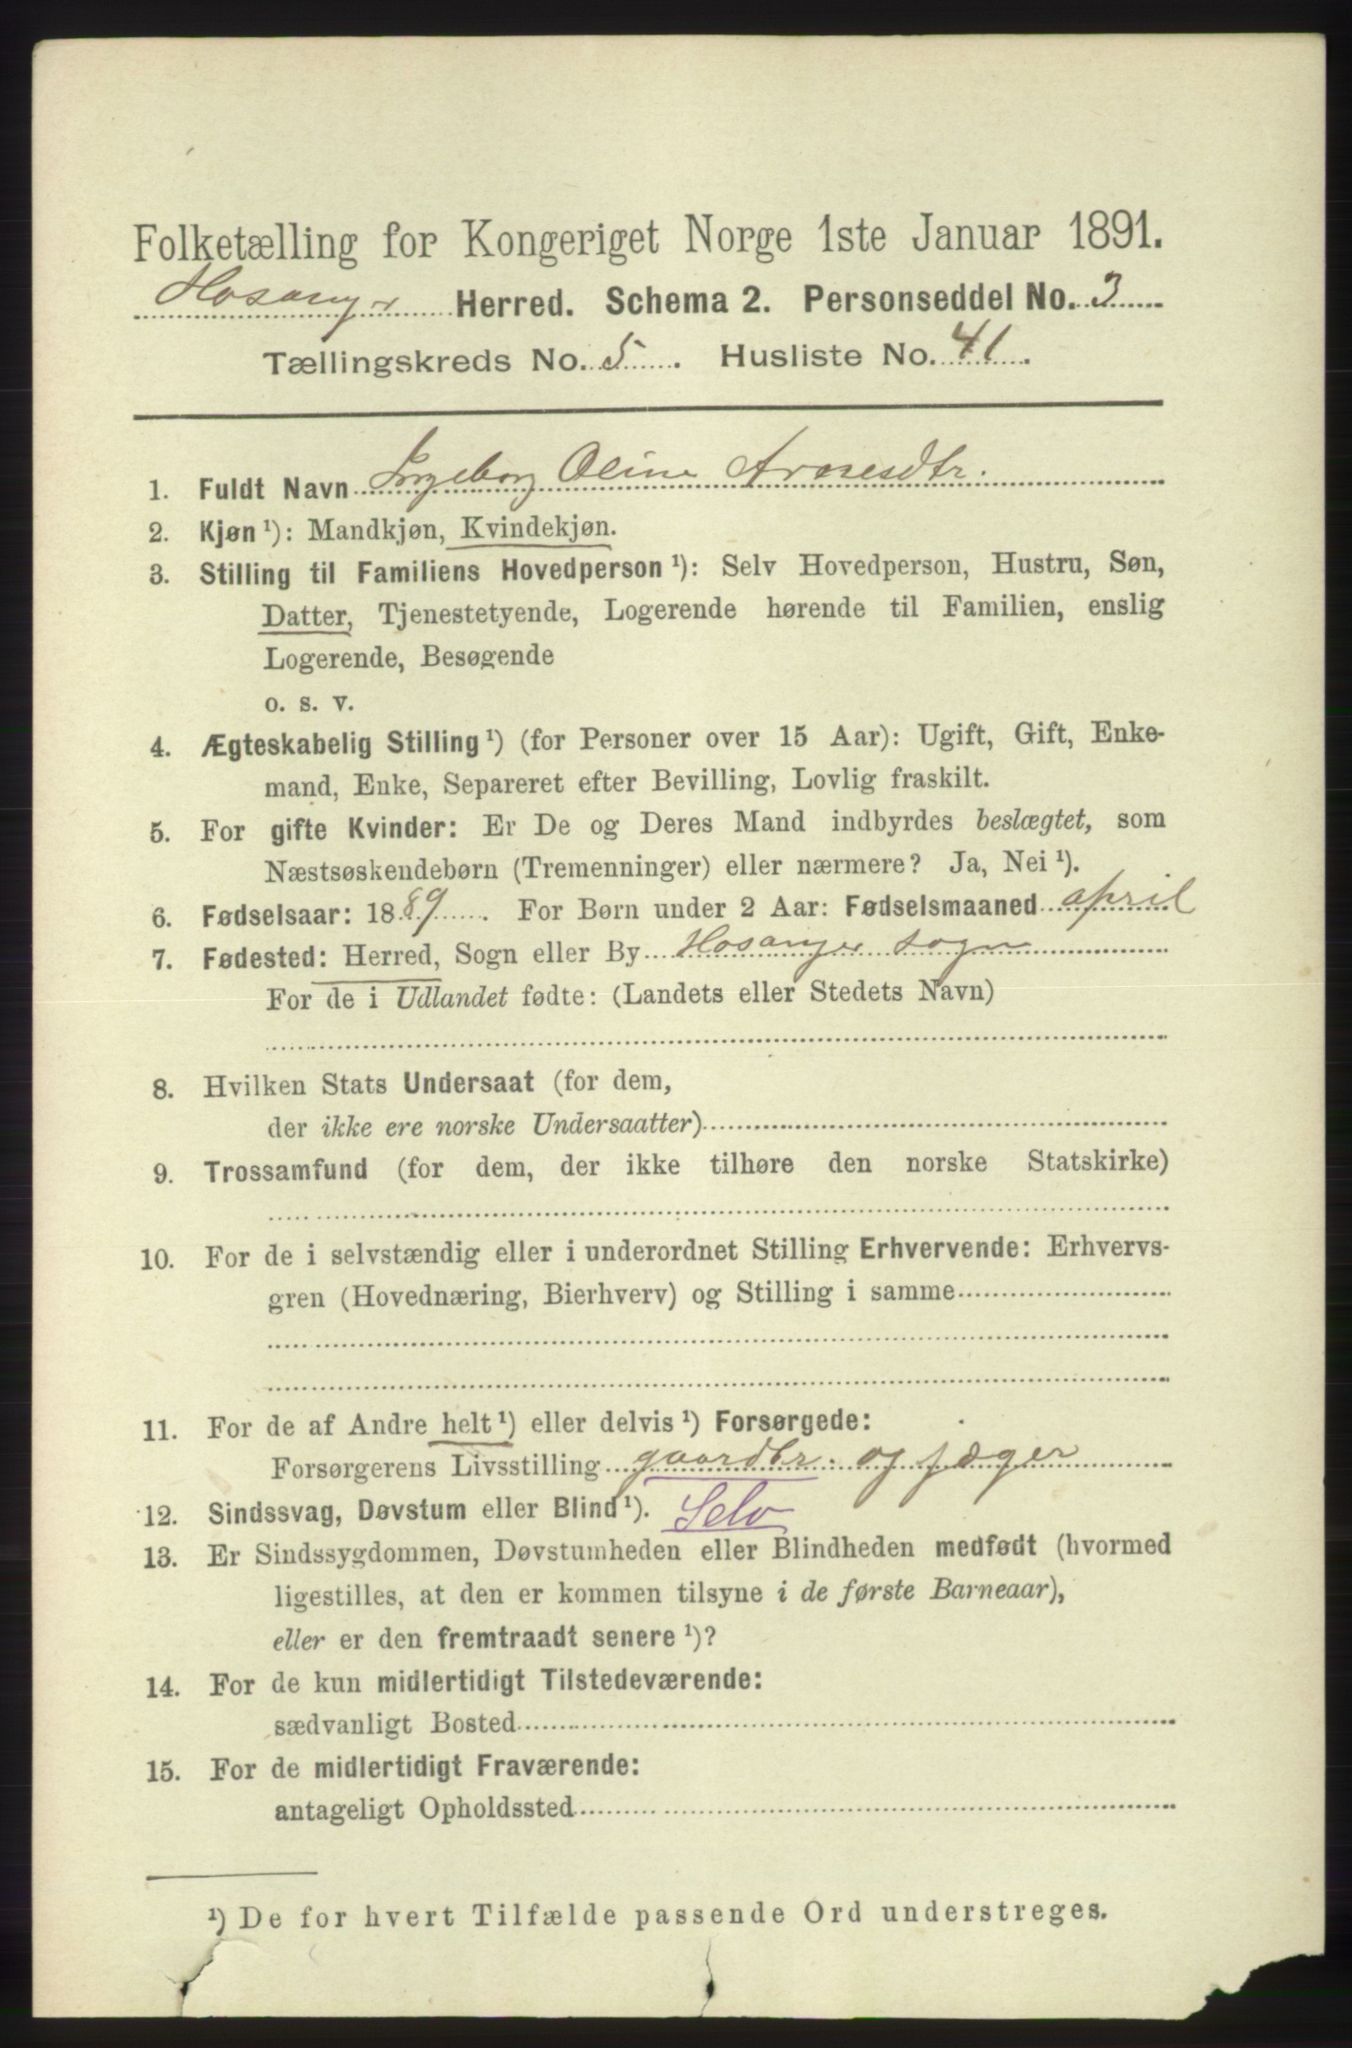 Folketælling for Kongeriget Norge 1ste Januar 1891.
Hosanger Herred. Schema 2. Personseddel No. 3
Tællingskreds No. 5. Husliste No. 41.
1. Fuldt Navn Ingeborg Oline Arnesdtr.
2. Kjøn¹): Mandkjøn, Kvindekjøn.
3. Stilling til Familiens Hovedperson¹): Selv Hovedperson, Hustru, Søn,
Datter, Tjenestetyende, Logerende hørende til Familien, enslig
Logerende, Besøgende
o. s. v.
4. Ægteskabelig Stilling¹) (for Personer over 15 Aar): Ugift, Gift, Enke-
mand, Enke, Separeret efter Bevilling, Lovlig fraskilt.
5. For gifte Kvinder: Er De og Deres Mand indbyrdes beslægtet, som
Næstsøskendebørn (Tremenninger) eller nærmere? Ja, Nei¹).
6. Fødselsaar: 1889. For Børn under 2 Aar: Fødselsmaaned april
7. Fødested: Herred, Sogn eller By Hosanger sogn
For de i Udlandet fødte: (Landets eller Stedets Navn)
8. Hvilken Stats Undersaat (for dem,
der ikke ere norske Undersaatter)
9. Trossamfund (for dem, der ikke tilhøre den norske Statskirke)
10. For de i selvstændig eller i underordnet Stilling Erhvervende: Erhvervs-
gren (Hovednæring, Bierhverv) og Stilling i samme
11. For de af Andre helt¹) eller delvis¹) Forsørgede:
Forsørgerens Livsstilling gaardbr. og jæger
12. Sindssvag, Døvstum eller Blind¹). Selv
13. Er Sindssygdommen, Døvstumheden eller Blindheden medfødt (hvormed
ligestilles, at den er kommen tilsyne i de første Barneaar),
eller er den fremtraadt senere¹)?
14. For de kun midlertidigt Tilstedeværende:
sædvanligt Bosted
15. For de midlertidigt Fraværende:
antageligt Opholdssted
¹) De for hvert Tilfælde passende Ord understreges.